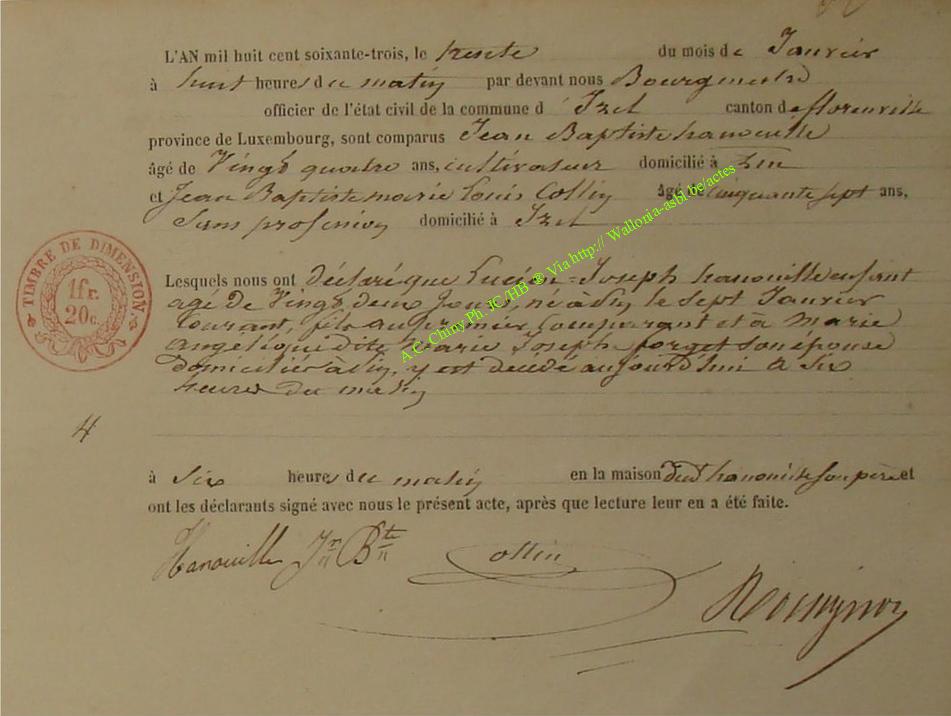 L'AN mil huit cent soixante-trois, le trente du mois de Janvier
à huit heures du matin par devant nous Bourgmestre
officier de l'état civil de la commune d'Izel canton de florenville
province de Luxembourg, sont comparus Jean Baptiste hanouille
âgé de Vingt quatre ans, cultivateur domicilié à
et Jean Baptiste marie Louis Collin âgé de cinquante sept ans,
Sans profession domicilié à Izel
Lesquels nous ont déclaré que Lucien-Joseph hanouille enfant
agé de Vingt deux jours, né le sept Janvier
Courant, fils au premier Comparant et à Marie
angélique dite Marie Joseph forget son épouse
domiciliés y est décédé aujourd'hui à Six
heures du matin
à Six heures du matin en la maison dud hanouille son père et
ont les déclarants signé avec nous le présent acte, après que lecture leur en a été faite.
Hanouille Jn Bte Collin
Rossignon
TIMBRE DE DIMENSION.
1fr.
20c.
4
A.C. Chiny Ph. JC/HB ® Via http:// Wallonia-asbl.be/actes